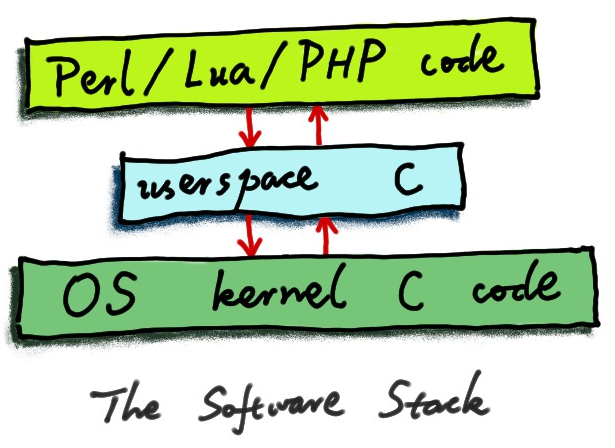 Perl/Lua/PHP code
userspace C
OS kernel C code
The Software Stack